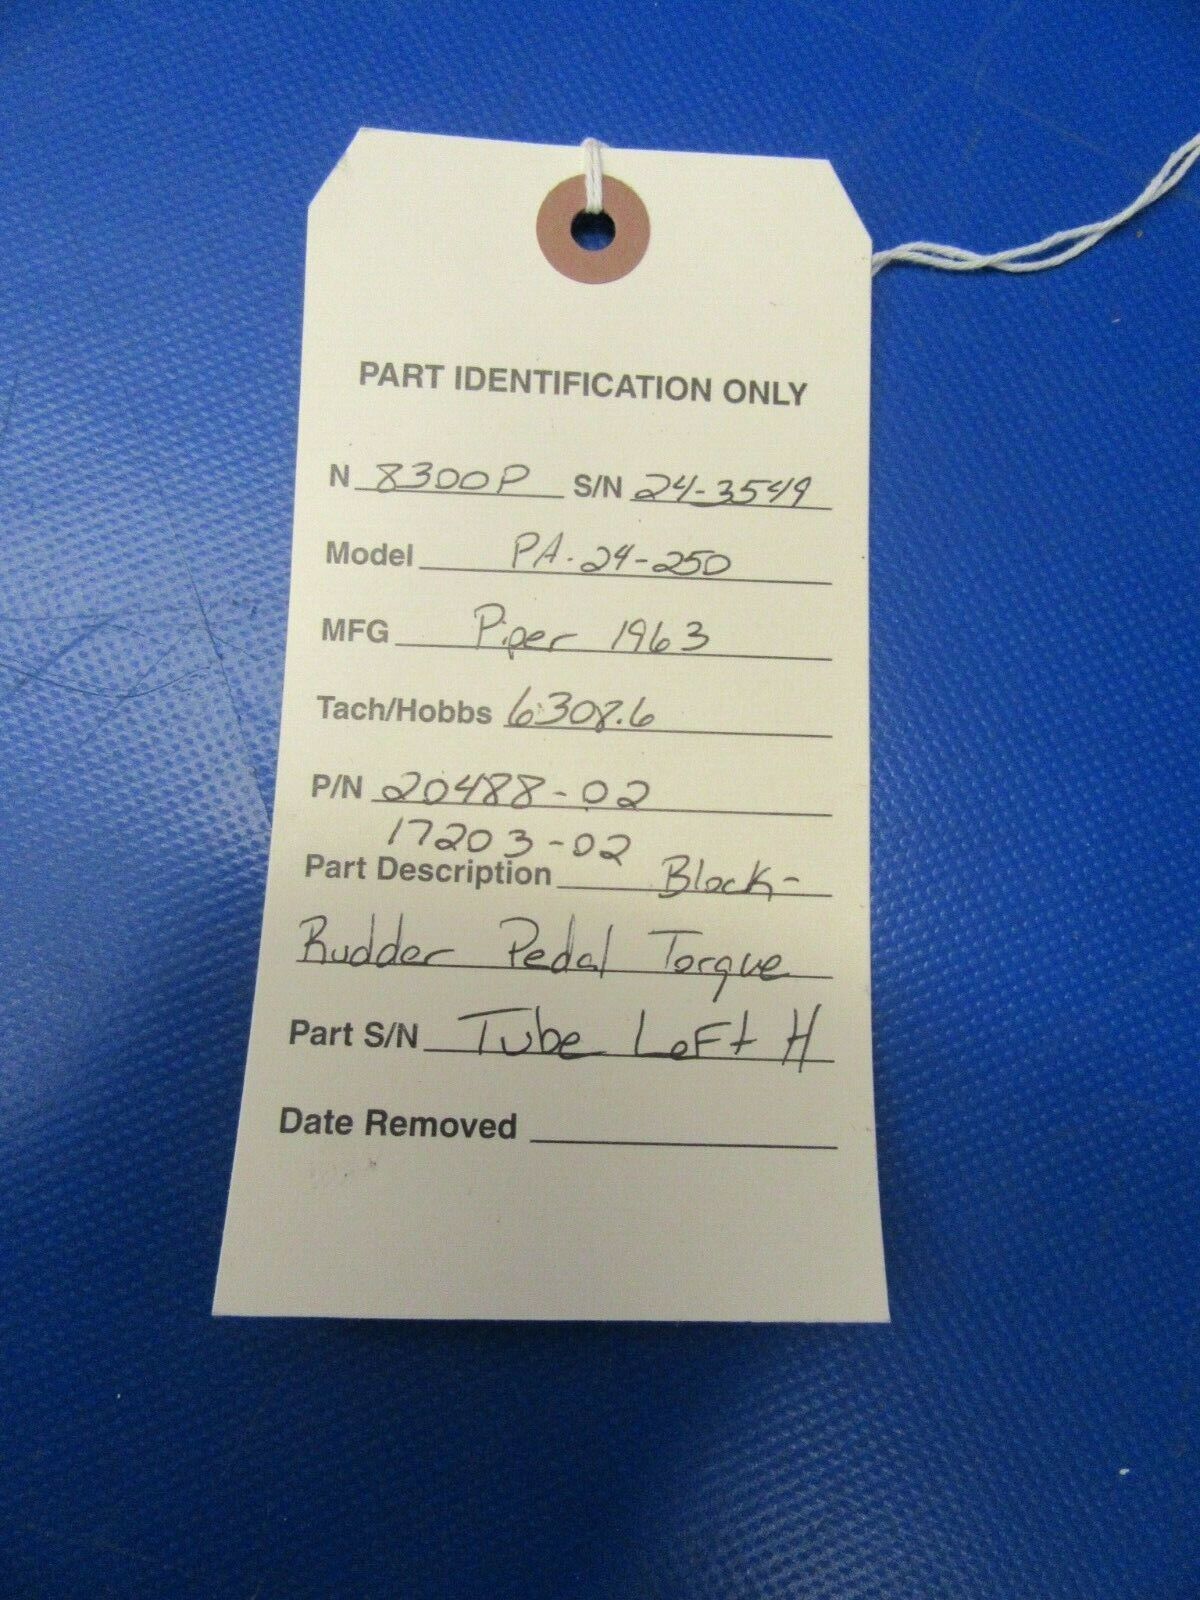 PART IDENTIFICATION ONLY
N 8300P S/N 24-3549
Model PA-24-250
MFG Piper 1963
Tach/Hobbs 6308.6
P/N 20488-02
17203-02
Part Description Block-
Rudder Pedal Torque
Part S/N Tube Left H
Date Removed